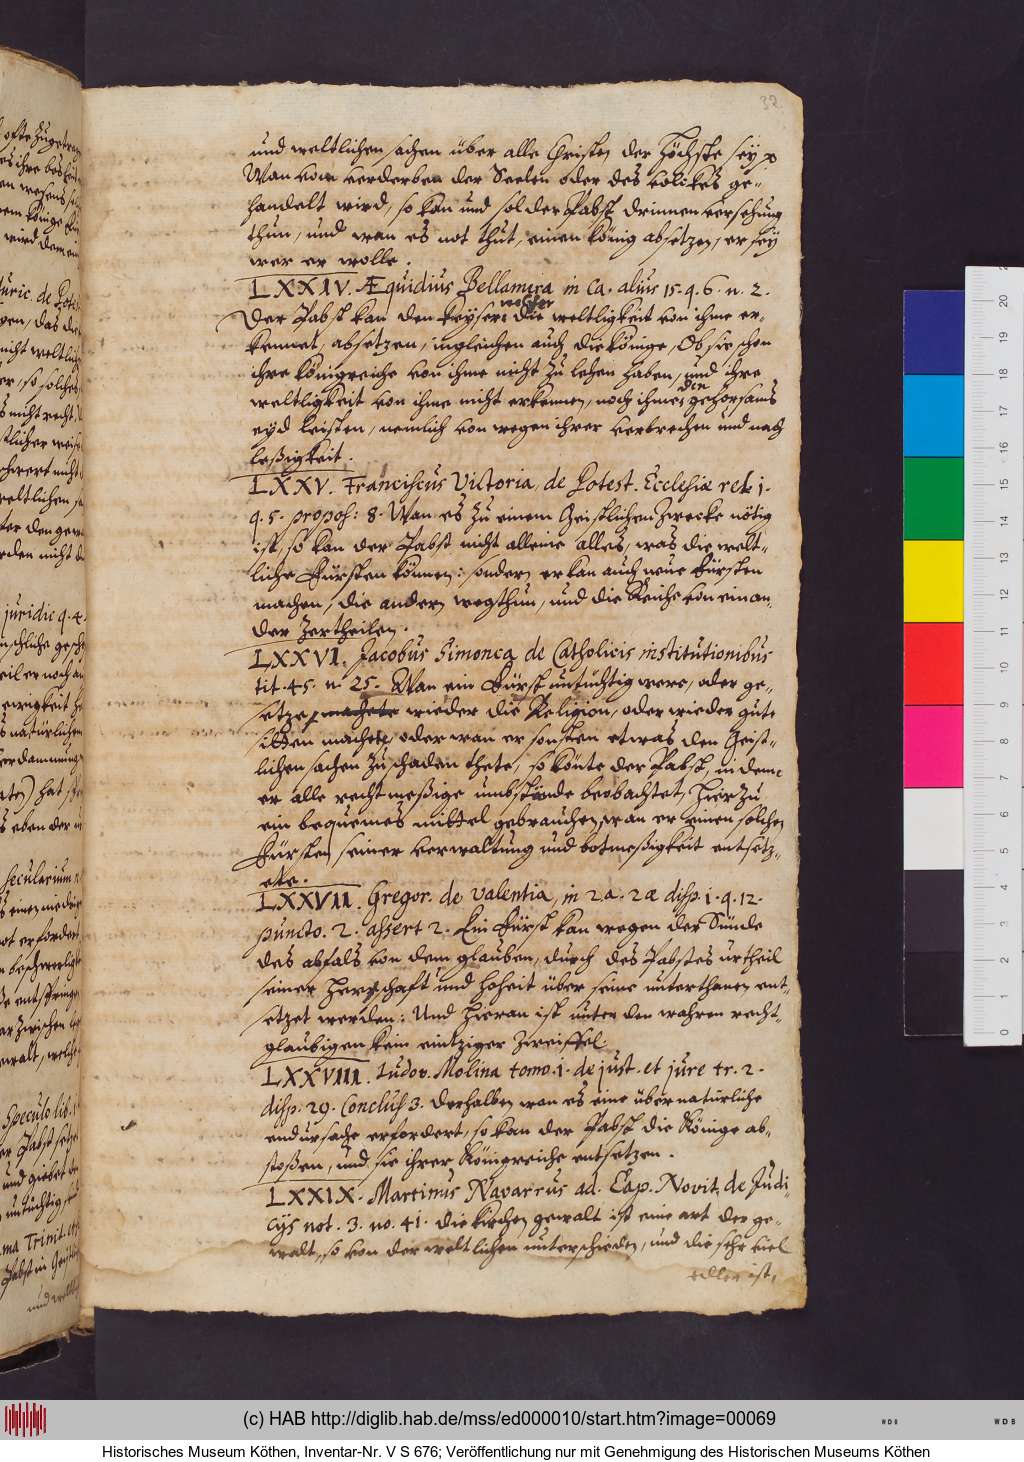 32
und weltlichen sachen über alle Christen der Höchste sey
Wan vom verderben der Seelen oder des volckes ge-
handelt wird, so kan und sol der Pabst drinnen versehung
thun, und wan es not thut, einen könig absetzen, er sey
wer er wolle.
LXXIV. Æquidius Bellamira in Ca. alius 15. q. 6. n. 2.
welcher
Der Pabst kan den keyser, die weltligkeit von ihme er-
kennet, absetzen, ingleichen auch die könige, Ob sie schon
ihre königreiche von ihme nicht zu lehen haben, und ihre
den
weltligkeit von ihme nicht erkennen, noch ihme gehorsams
eyd leisten, nemlich von wegen ihrer verbrechen und nach
leßigkeit.
LXXV. Franciscus Victoria, de Potest. Ecclesiæ rel. 1.
q. 5. propos: 8. Wan es zu einem Geistlichen Zwecke nötig
ist, so kan der Pabst nicht alleine alles, was die welt-
liche Fürsten können: sondern er kan auch neue Fürsten
machen, die andern wegthun, und die Reiche von einan-
der zertheilen.
LXXVI. Jacobus Simonca de Catholicis institutionibus
tit. 45. n. 25. Wan ein Fürst untüchtig were, oder ge-
setze machete wieder die Religion, oder wieder gute
sitten machete, oder wan er sonsten etwas den Geist-
lichen sachen zu schaden thete, so könte der Pabst, in deme
er alle rechtmeßige umbstände beobachtet, hierzu
ein bequemes mittel gebrauchen, wan er einen solchen
Fürsten seiner verwaltung und botmeßigkeit entsetz-
ete.
LXXVII. Gregor. de Valentia, in 2a. 2æ disp. 1. q. 12.
puncto. 2. assert 2. Ein Fürst kan wegen der Sünde
des abfals von dem glauben, durch des Pabstes urtheil
seiner Herschaft und hoheit über seine unterthanen ent-
setzet werden: Und hieran ist unter den wahren recht-
glaubigen kein eintziger zweiffel.
LXXVIII. Ludov. Molina tomo. 1. de just. et jure tr. 2.
disp. 29. Conclus 3. derhalben wan es eine übernatürliche
endursache erfordert, so kan der Pabst die Könige ab-
stoßen, und sie ihrer Königreiche entsetzen.
LXXIX. Martinus Navarrus ad. Cap. Novit, de Judi-
cijs not. 3. no. 41. die kirchen gewalt ist eine art der ge-
walt, so von der weltlichen unterschieden, und die sehr viel
edler ist,
(c) HAB http://diglib.hab.de/mss/ed000010/start.htm?image=00069
Historisches Museum Köthen, Inventar-Nr. V S 676; Veröffentlichung nur mit Genehmigung des Historischen Museums Köthen